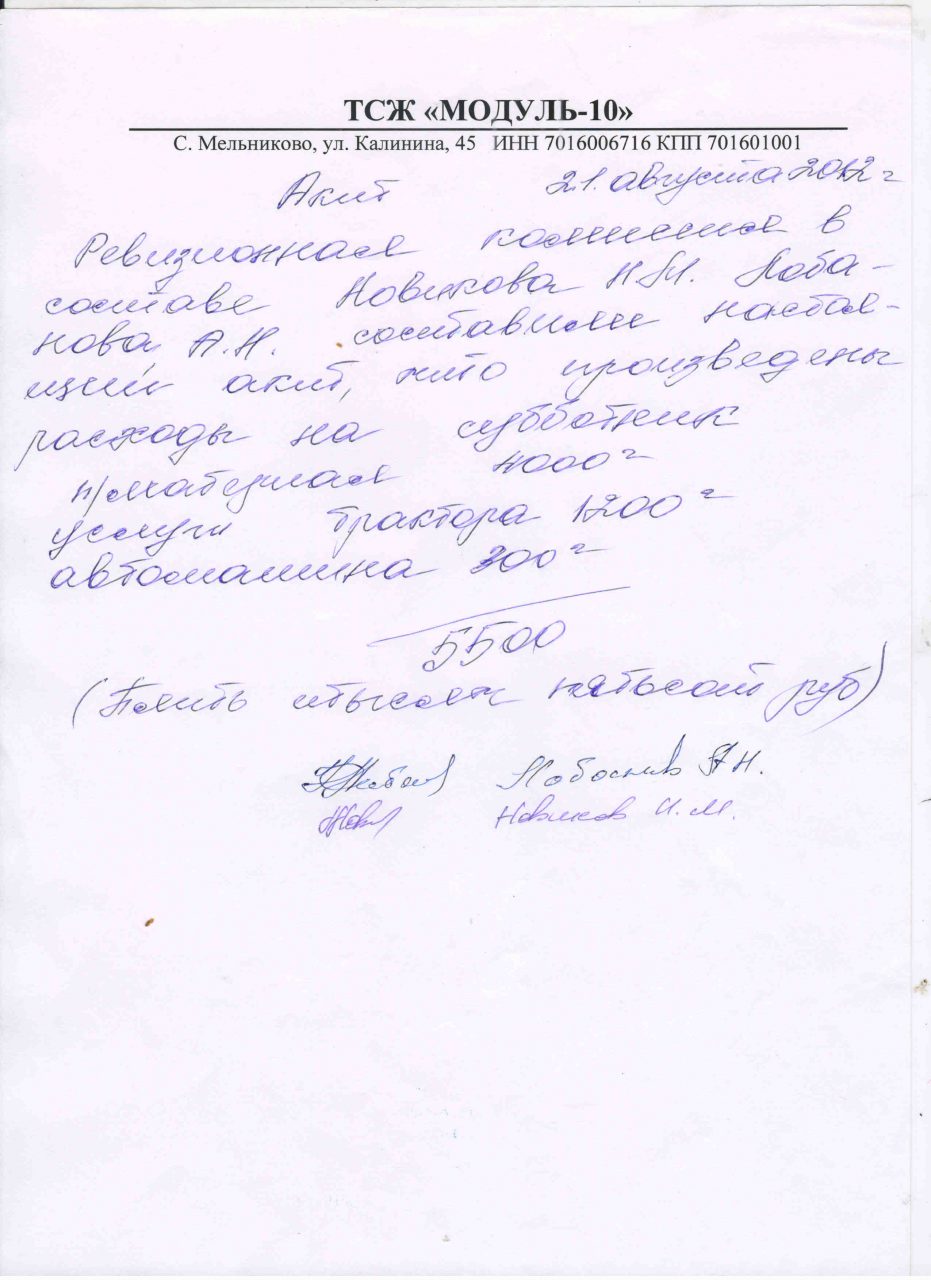 ТСЖ «МОДУЛЬ-10»
С. Мельниково, ул. Калинина, 45 ИНН 7016006716 КПП 701601001
Акт 21. августа 2012 г
Ревизионная комиссия в
составе Новикова Н.М. Лоба-
нова А.Н. составили настоя-
щий акт, что произведены
расходы на субботник
4000
услуги трактора 1200
автомашина 300
5500
(Пять тысяч пятьсот руб)
А Н.
Новиков Н. М.